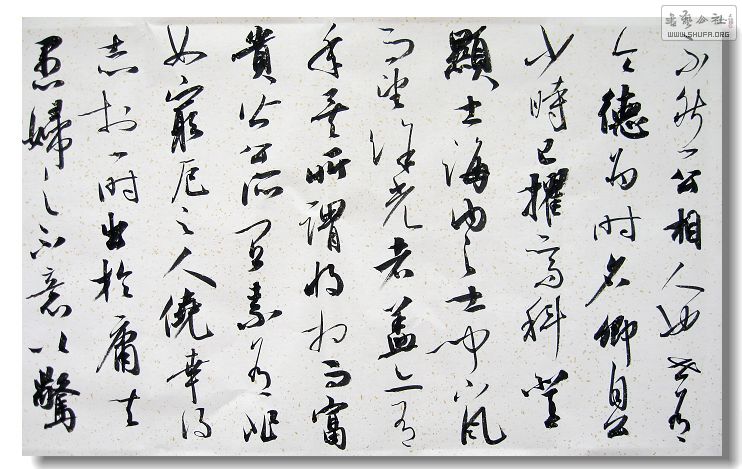 不然公相人也世有
令德為时名卿自公
少時已擢高科登
顯士海内之士聞下風
而望餘光者蓋亦有
年矣所謂将相而富
貴皆公所宜素有非
如窮厄之人僥幸得
志於一时出於庸夫
愚婦之不意以驚
书艺公社
WWW.SHUFA.ORG